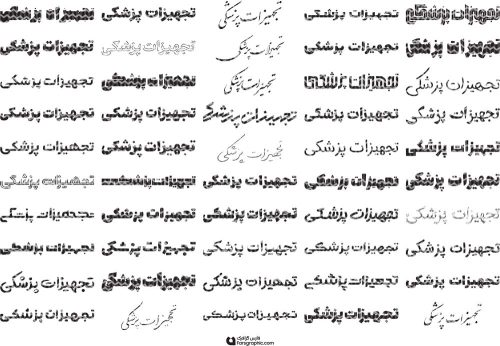 تجهیزات پزشکی تجهیزات پزشکی تجهیزات پزشکی تجهیزات پزشکی تجهیزات پزشکی
تجهیزات پزشکی تجهیزات پزشکی تجهیزات پزشکی تجهیزات پزشکی تجهیزات پزشکی
تجهیزات پزشکی تجهیزات پزشکی تجهیزات پزشکی تجهیزات پزشکی تجهیزات پزشکی
تجهیزات پزشکی تجهیزات پزشکی تجهیزات پزشکی تجهیزات پزشکی تجهیزات پزشکی
تجهیزات پزشکی تجهیزات پزشکی تجهیزات پزشکی تجهیزات پزشکی تجهیزات پزشکی
تجهیزات پزشکی تجهیزات پزشکی تجهیزات پزشکی تجهیزات پزشکی تجهیزات پزشکی
تجهیزات پزشکی تجهیزات پزشکی تجهیزات پزشکی تجهیزات پزشکی تجهیزات پزشکی
تجهیزات پزشکی تجهیزات پزشکی تجهیزات پزشکی تجهیزات پزشکی تجهیزات پزشکی
تجهیزات پزشکی تجهیزات پزشکی تجهیزات پزشکی تجهیزات پزشکی تجهیزات پزشکی
تجهیزات پزشکی تجهیزات پزشکی تجهیزات پزشکی تجهیزات پزشکی تجهیزات پزشکی
فارس گرافیک
Farsgraphic.com